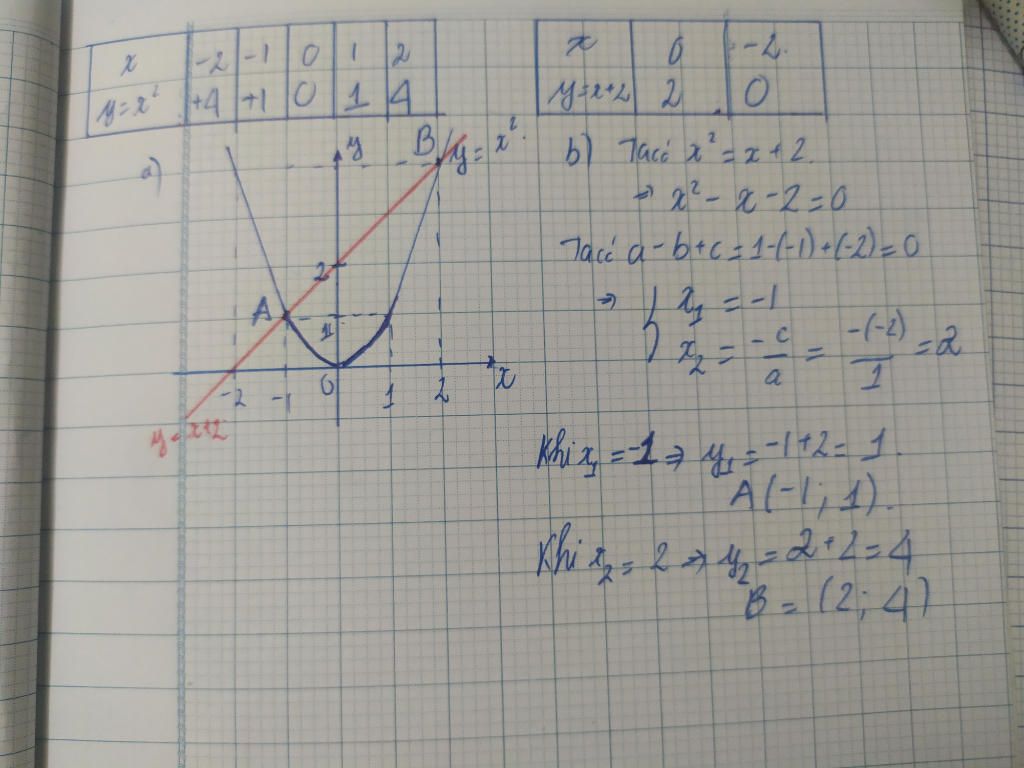 x -2 -1 0 1 2
y=x² +4 +1 0 1 4
x 0 -2
y=x+2 2 0
a)
y
B
y=x²
2
A
1
0
x
-2 -1 1 2
y=x+2
b) Ta có x² = x + 2.
⇒ x² - x - 2 = 0
Ta có a - b + c = 1-(-1)+(-2) = 0
⇒ { x₁ = -1
x₂ = -c/a = -(-2)/1 = 2
Khi x₁ = -1 ⇒ y₁ = -1+2 = 1.
A(-1; 1).
Khi x₂ = 2 ⇒ y₂ = 2+2 = 4
B = (2; 4)